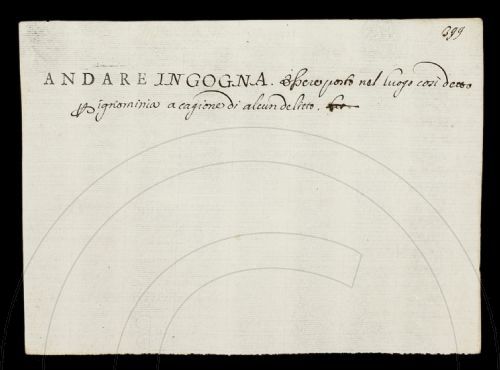 699
ANDARE IN GOGNA. Essere posto nel luogo così detto
p ignominia a cagione di alcun delitto.